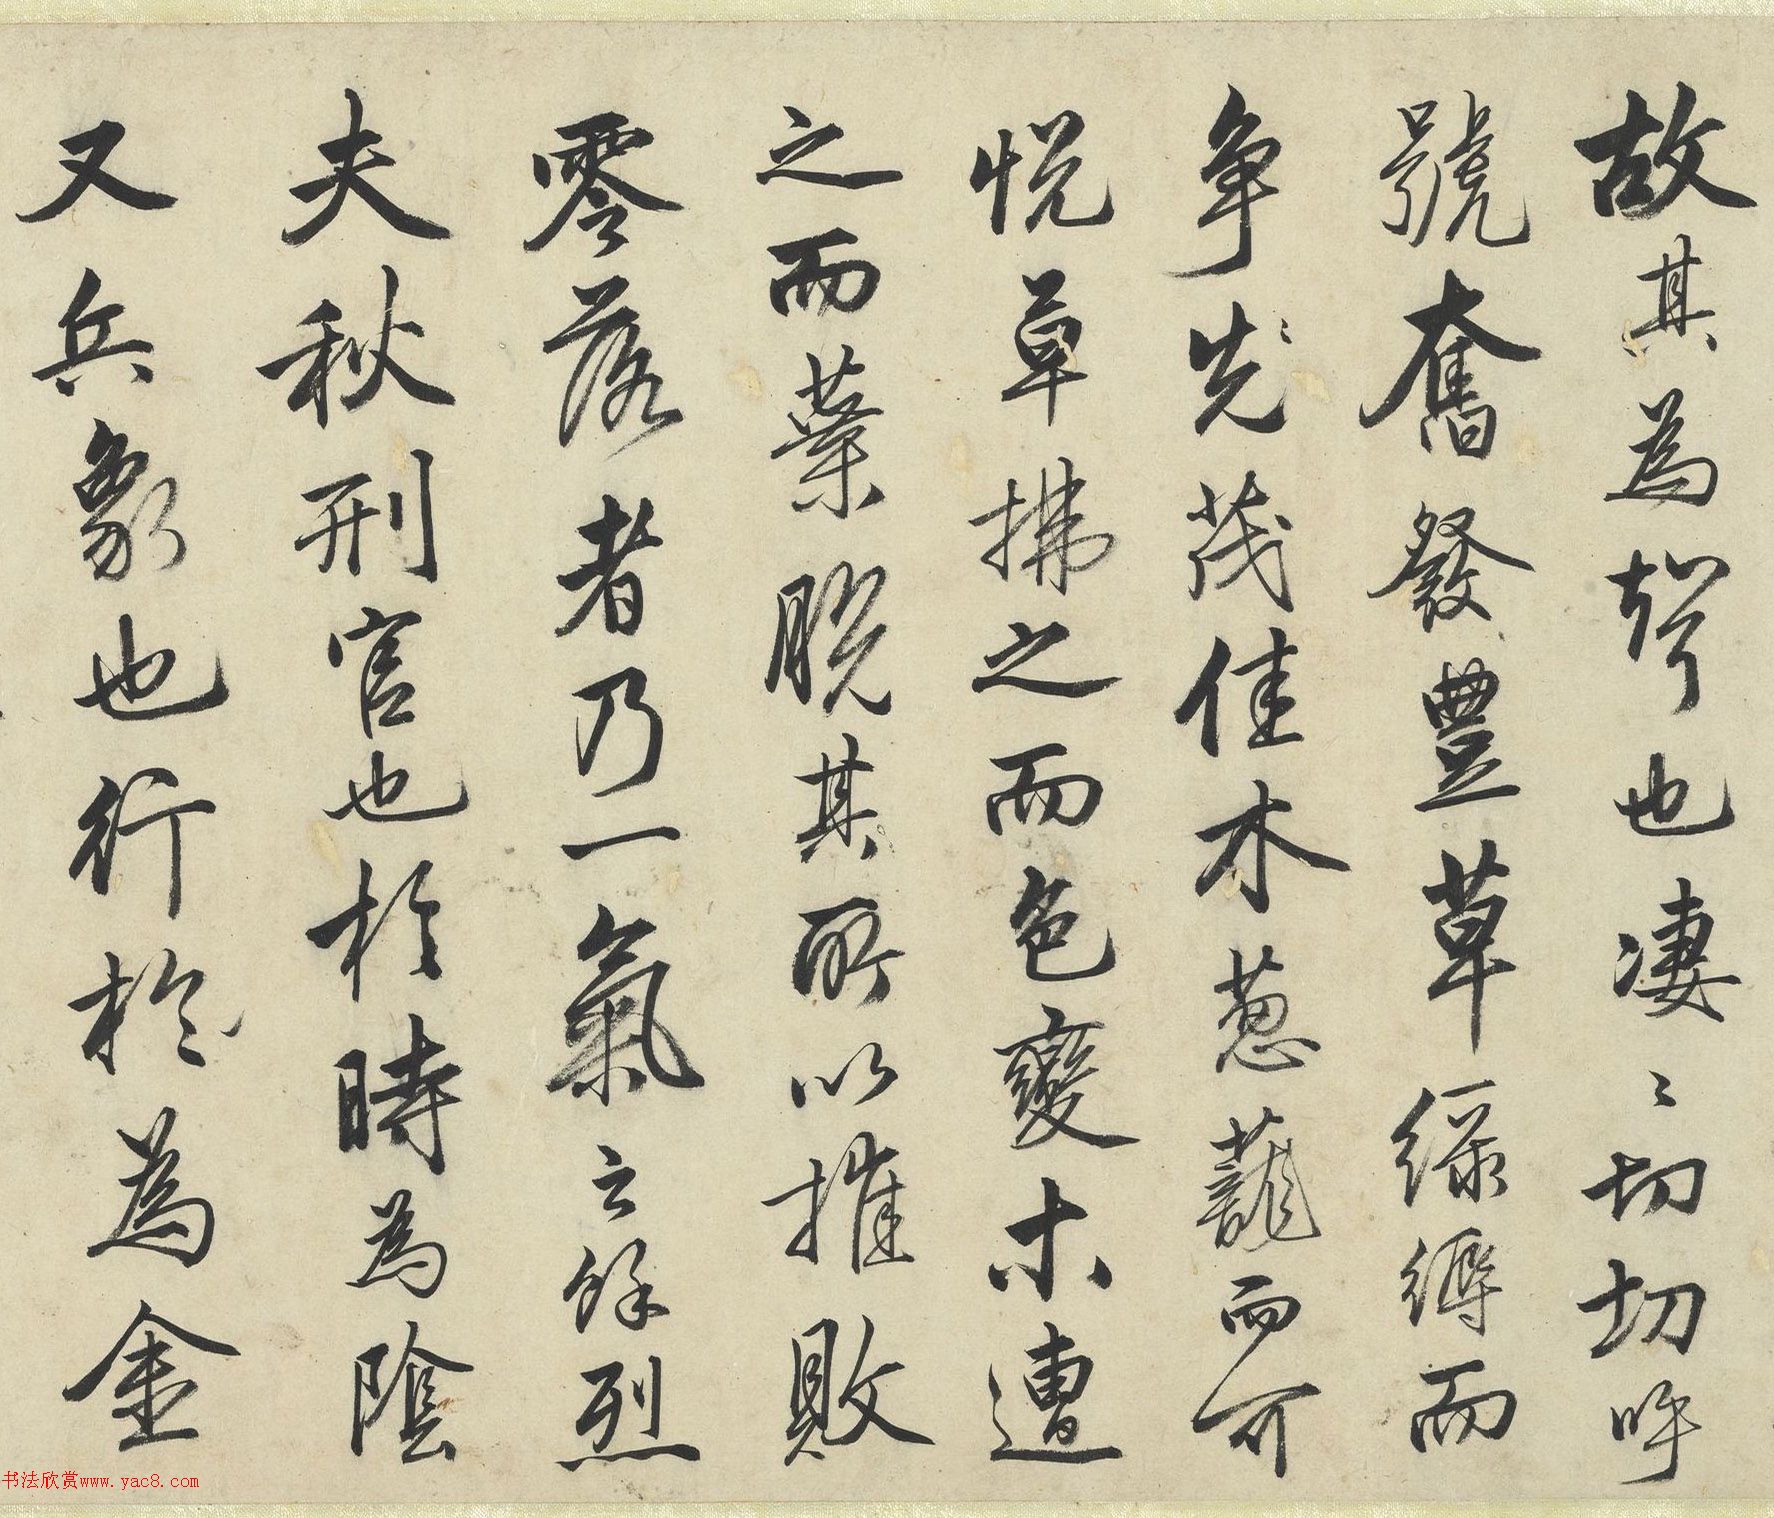 故其為聲也淒〻切切呼
號奮發豐草綠縟而
爭先茂佳木蔥蘢而可
悅草拂之而色變木遭
之而葉脫其所以摧敗
零落者乃一氣之餘烈
夫秋刑官也於時為陰
又兵象也行於為金
书法欣赏www.yac8.com